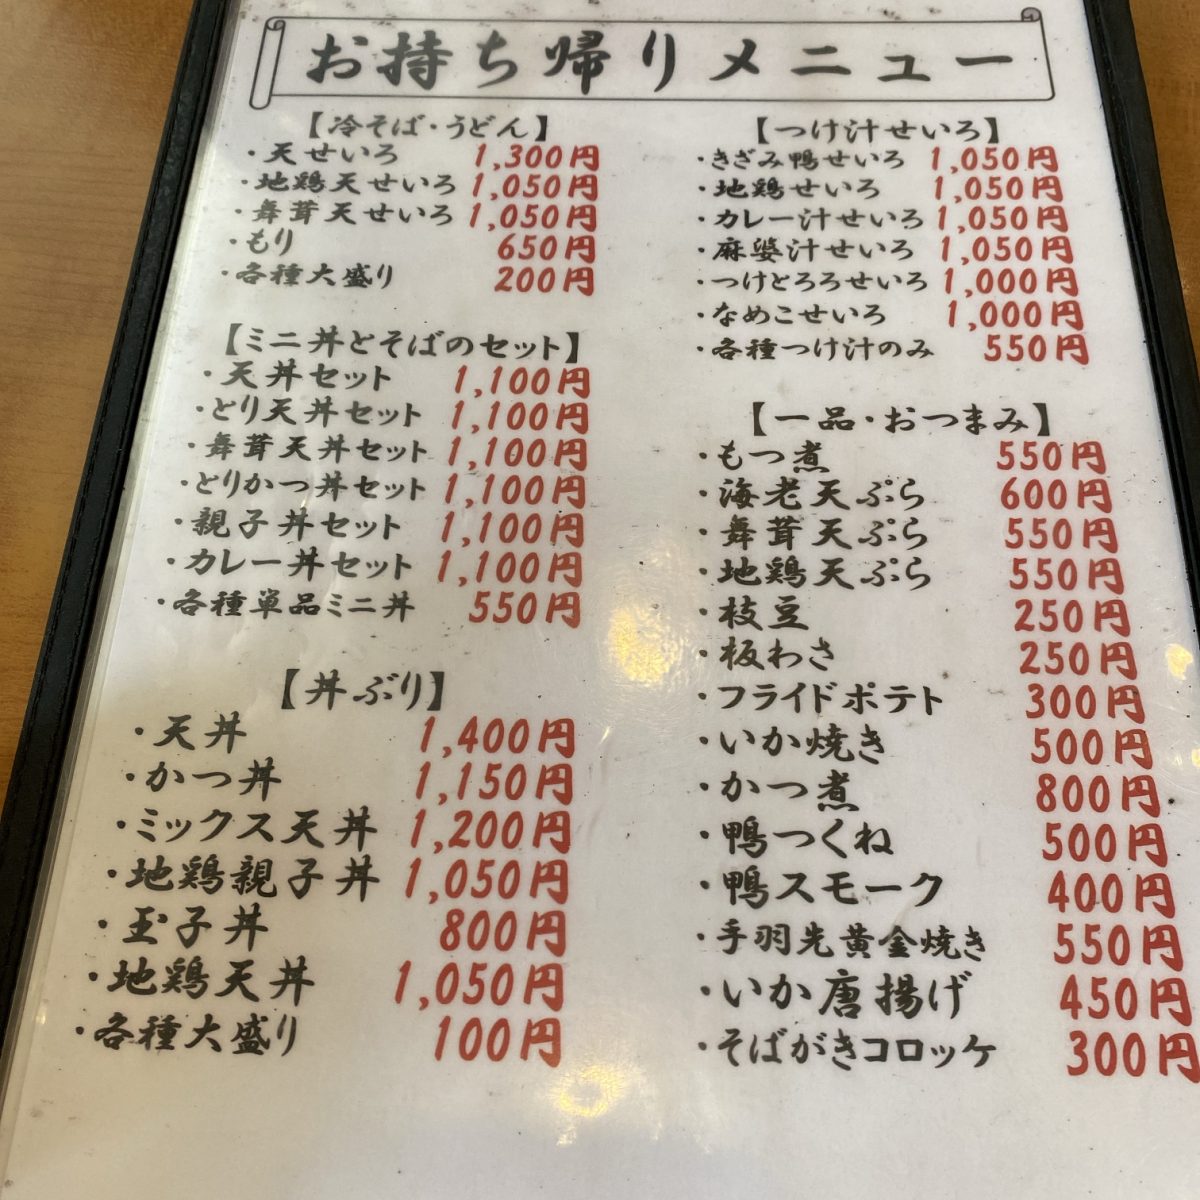 お持ち帰りメニュー
【冷そば・うどん】
・天せいろ 1,300円
・地鶏天せいろ 1,050円
・舞茸天せいろ 1,050円
・もり 650円
・各種大盛り 200円
【ミニ丼とそばのセット】
・天丼セット 1,100円
・とり天丼セット 1,100円
・舞茸天丼セット 1,100円
・とりかつ丼セット 1,100円
・親子丼セット 1,100円
・カレー丼セット 1,100円
・各種単品ミニ丼 550円
【丼ぶり】
・天丼 1,400円
・かつ丼 1,150円
・ミックス天丼 1,200円
・地鶏親子丼 1,050円
・玉子丼 800円
・地鶏天丼 1,050円
・各種大盛り 100円
【つけ汁せいろ】
・きざみ鴨せいろ 1,050円
・地鶏せいろ 1,050円
・カレー汁せいろ 1,050円
・麻婆汁せいろ 1,050円
・つけとろろせいろ 1,000円
・なめこせいろ 1,000円
・各種つけ汁のみ 550円
【一品・おつまみ】
・もつ煮 550円
・海老天ぷら 600円
・舞茸天ぷら 550円
・地鶏天ぷら 550円
・枝豆 250円
・板わさ 250円
・フライドポテト 300円
・いか焼き 500円
・かつ煮 800円
・鴨つくね 500円
・鴨スモーク 400円
・手羽先黄金焼き 550円
・いか唐揚げ 450円
・そばがきコロッケ 300円